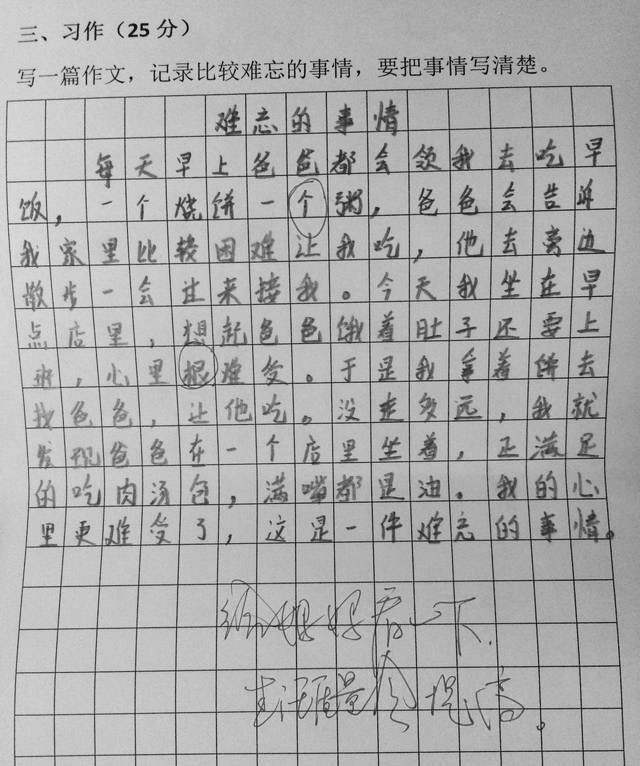 三、习作（25分）
写一篇作文，记录比较难忘的事情，要把事情写清楚。
难忘的事情
每天早上爸爸都会领我去吃早
饭，一个烧饼一个粥，爸爸会告诉
我家里比较困难让我吃，他去旁边
散步一会过来接我。今天我坐在早
点店里，想起爸爸饿着肚子还要上
班，心里根难受。于是我拿着饼去
找爸爸，让他吃。没走多远，我就
发现爸爸在一个店里坐着，正满足
的吃肉汤包，满嘴都是油。我的心
里更难受了，这是一件难忘的事情。
给妈妈看一下.
生活质量会提高。